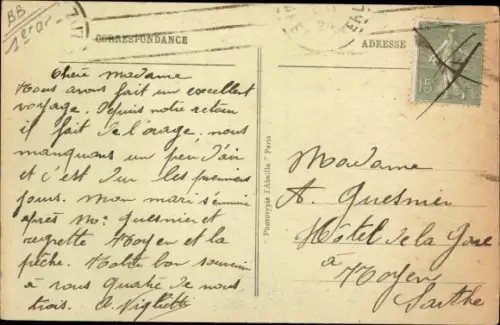 BB
1er ar
CORRESPONDANCE
ADRESSE
15
Chère Madame
Nous avons fait un excellent
voyage. Depuis notre retour
il fait de l'orage, nous
manquons un peu d'air
et c'est dur les premiers
jours. Mon mari s'ennuie
après Mr Guesnier et
regrette Noyen et la
pêche. Notre bon souvenir
à vous quatre de nous
trois.
" Phototypie d'Abeille " Paris
Madame
A. Guesnier
Hôtel de la Gare
à Noyen
Sarthe